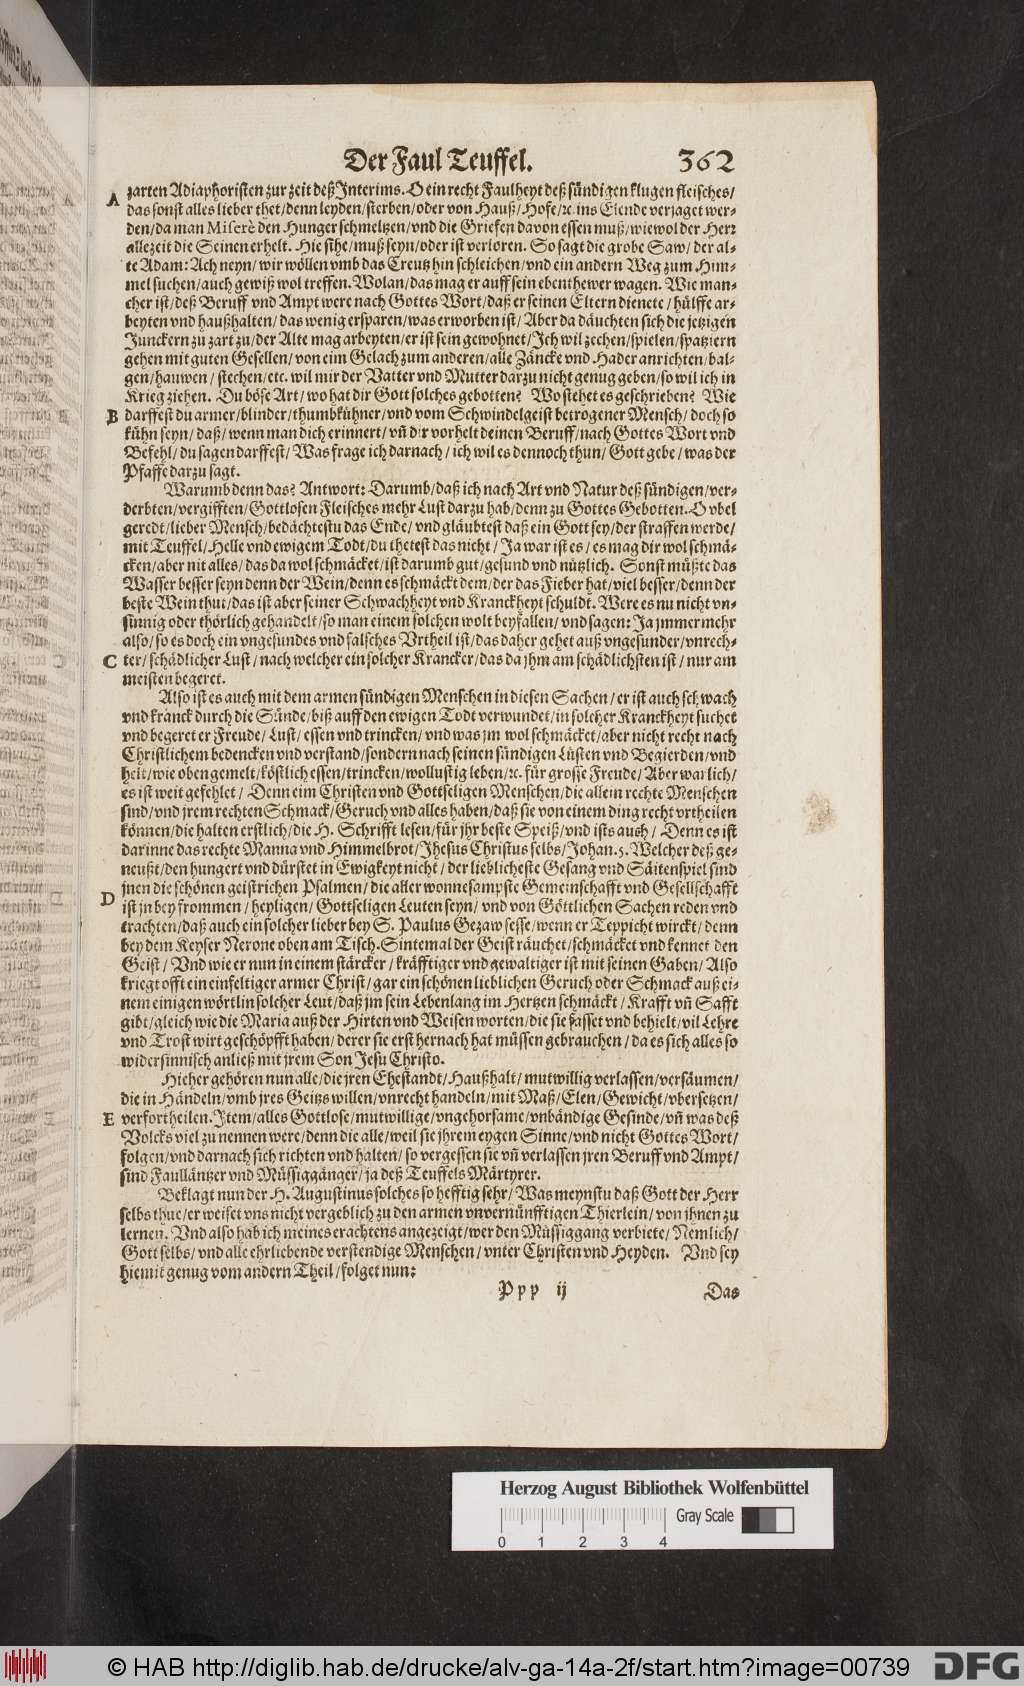 Der Faul Teuffel. 362
A zarten Adiaphoristen zur zeit deß Interims. O ein recht Faulheyt deß sündigen klugen fleisches/
das sonst alles lieber thet/denn leyden/sterben/oder von Hauß/Hofe/ꝛc. ins Elende verjaget wer-
den/da man Miserè den Hunger schmeltzen/vnd die Griefen davon essen muß/wiewol der Herr
allezeit die Seinen erhelt. Hie sihe/muß seyn/oder ist verloren. So sagt die grobe Saw/der al-
te Adam: Ach neyn/wir wöllen vmb das Creutz hin schleichen/vnd ein andern Weg zum Him-
mel suchen/auch gewiß wol treffen. Wolan/das mag er auff sein ebenthewer wagen. Wie man-
cher ist/deß Beruff vnd Ampt were nach Gottes Wort/daß er seinen Eltern dienete/hülffe ar-
beyten vnd haußhalten/das wenig ersparen/was erworben ist/Aber da däuchten sich die jetzigen
Junckern zu zart zu/der Alte mag arbeyten/er ist sein gewohnet/Ich wil zechen/spielen/spatziern
gehen mit guten Gesellen/von eim Gelach zum anderen/alle Zäncke vnd Hader anrichten/bal-
gen/hauwen/stechen/etc. wil mir der Vatter vnd Mutter darzu nicht genug geben/so wil ich in
Krieg ziehen. Du böse Art/wo hat dir Gott solches gebotten? Wo stehet es geschrieben? Wie
B darffest du armer/blinder/thumbkühner/vnd vom Schwindelgeist betrogener Mensch/doch so
kühn seyn/daß/wenn man dich erinnert/vñ dir vorhelt deinen Beruff/nach Gottes Wort vnd
Befehl/du sagen darffest/Was frage ich darnach/ich wil es dennoch thun/Gott gebe/was der
Pfaffe darzu sagt.
Warumb denn das? Antwort: Darumb/daß ich nach Art vnd Natur deß sündigen/ver-
derbten/vergifften/Gottlosen Fleisches mehr Lust darzu hab/denn zu Gottes Gebotten. O vbel
geredt/lieber Mensch/bedächtestu das Ende/vnd gläubtest daß ein Gott sey/der straffen werde/
mit Teuffel/Helle vnd ewigem Todt/du thetest das nicht/Ja war ist es/es mag dir wol schmä-
cken/aber nit alles/das da wol schmäcket/ist darumb gut/gesund vnd nützlich. Sonst müßte das
Wasser besser seyn denn der Wein/denn es schmäckt dem/der das Fieber hat/viel besser/denn der
beste Wein thut/das ist aber seiner Schwachheyt vnd Kranckheyt schuldt. Were es nu nicht vn-
sinnig oder thörlich gehandelt/so man einem solchen wolt beyfallen/vnd sagen: Ja jmmermehr
also/so es doch ein vngesundes vnd falsches Vrtheil ist/das daher gehet auß vngesunder/vnrech-
C ter/schädlicher Lust/nach welcher ein solcher Krancker/das da jhm am schädlichsten ist/nur am
meisten begeret.
Also ist es auch mit dem armen sündigen Menschen in diesen Sachen/er ist auch schwach
vnd kranck durch die Sünde/biß auff den ewigen Todt verwundet/in solcher Kranckheyt suchet
vnd begeret er Freude/Lust/essen vnd trincken/vnd was jm wol schmäcket/aber nicht recht nach
Christlichem bedencken vnd verstand/sondern nach seinen sündigen Lüsten vnd Begierden/vnd
helt/wie oben gemelt/köstlich essen/trincken/wollustig leben/ꝛc. für grosse Freude/Aber warlich/
es ist weit gefehlet/Denn eim Christen vnd Gottseligen Menschen/die allein rechte Menschen
sind/vnd jrem rechten Schmack/Geruch vnd alles haben/daß sie von einem ding recht vrtheilen
können/die halten erstlich/die H. Schrifft lesen/für jhr beste Speiß/vnd ists auch/Denn es ist
darinne das rechte Manna vnd Himmelbrot/Jhesus Christus selbs/Johan. 5. Welcher deß ge-
neußt/den hungert vnd dürstet in Ewigkeyt nicht/der lieblicheste Gesang vnd Säitenspiel sind
jnen die schönen geistrichen Psalmen/die aller wonnesampste Gemeinschafft vnd Gesellschafft
D ist jn bey frommen/heyligen/Gottseligen Leuten seyn/vnd von Göttlichen Sachen reden vnd
trachten/daß auch ein solcher lieber bey S. Paulus Gezaw sesse/wenn er Teppicht wirckt/denn
bey dem Keyser Nerone oben am Tisch. Sintemal der Geist räuchet/schmäcket vnd kennet den
Geist/Vnd wie er nun in einem stärcker/kräfftiger vnd gewaltiger ist mit seinen Gaben/Also
kriegt offt ein einfeltiger armer Christ/gar ein schönen lieblichen Geruch oder Schmack auß ei-
nem einigen wörtlin solcher Leut/daß jm sein Lebenlang im Hertzen schmäckt/Krafft vñ Safft
gibt/gleich wie die Maria auß der Hirten vnd Weisen worten/die sie fasset vnd behielt/vil Lehre
vnd Trost wirt geschöpfft haben/derer sie erst hernach hat müssen gebrauchen/da es sich alles so
widersinnisch anließ mit jrem Son Jesu Christo.
Hieher gehören nun alle/die jren Ehestandt/Haußhalt/mutwillig verlassen/versäumen/
die in Händeln/vmb jres Geitzs willen/vnrecht handeln/mit Maß/Elen/Gewicht/vbersetzen/
E verfortheilen. Item/alles Gottlose/mutwillige/vngehorsame/vnbändige Gesinde/vñ was deß
Volcks viel zu nennen were/denn die alle/weil sie jhrem eygen Sinne/vnd nicht Gottes Wort/
folgen/vnd darnach sich richten vnd halten/so vergessen sie vñ verlassen jren Beruff vnd Ampt/
sind Faulläntzer vnd Müssiggänger/ja deß Teuffels Märtyrer.
Beklagt nun der H. Augustinus solches so hefftig sehr/Was meynstu daß Gott der Herr
selbs thue/er weiset vns nicht vergeblich zu den armen vnvernünfftigen Thierlein/von jhnen zu
lernen. Vnd also hab ich meines erachtens angezeigt/wer den Müssiggang verbiete/Nemlich/
Gott selbs/vnd alle ehrliebende verstendige Menschen/vnter Christen vnd Heyden. Vnd sey
hiemit genug vom andern Theil/folget nun:
Ppp ij Das
Herzog August Bibliothek Wolfenbüttel
Gray Scale
0 1 2 3 4
© HAB http://diglib.hab.de/drucke/alv-ga-14a-2f/start.htm?image=00739
DFG